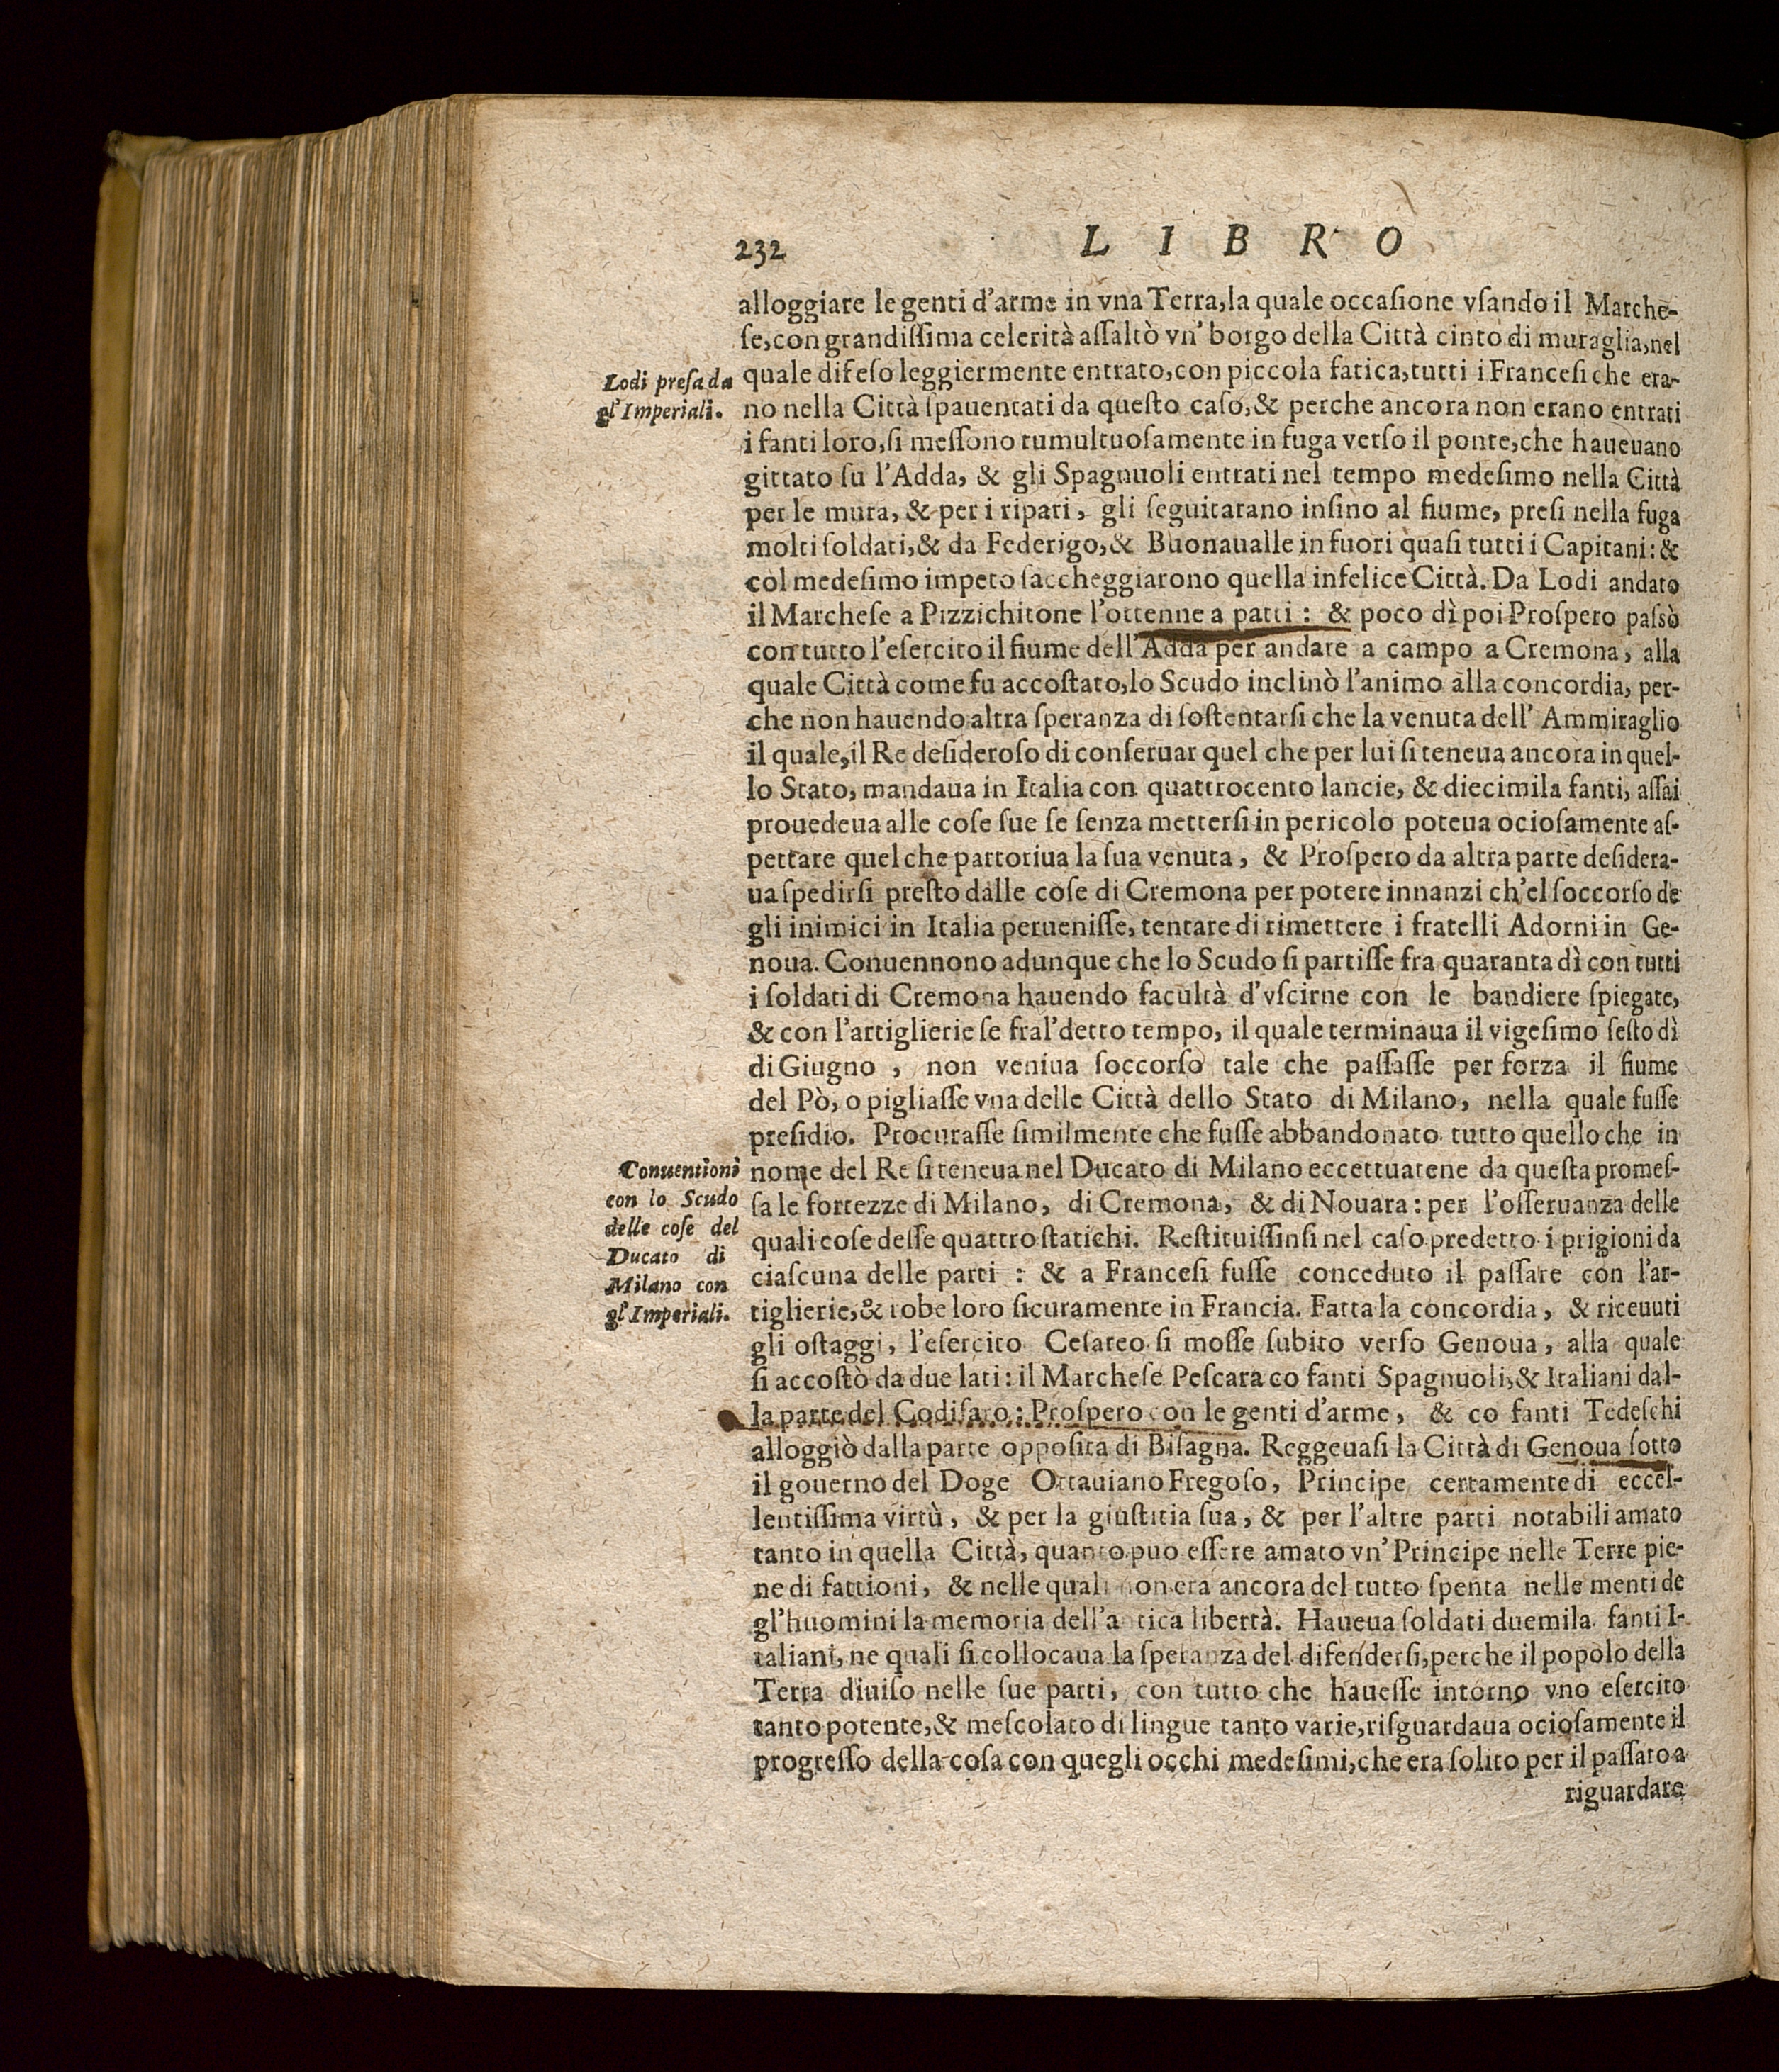 232
LIBRO
alloggiare le genti d'arme in vna Terra, la quale occaſione vſando il Marche-
ſe, con grandiſſima celerità aſſaltò vn' borgo della Città cinto di muraglia, nel
Lodi preſa da
gl'Imperiali.
quale difeſo leggiermente entrato, con piccola fatica, tutti i Franceſi che era-
no nella Città ſpauentati da queſto caſo, & perche ancora non erano entrati
i fanti loro, ſi meſſono tumultuoſamente in fuga verſo il ponte, che haueuano
gittato ſu l'Adda, & gli Spagnuoli entrati nel tempo medeſimo nella Città
per le mura, & per i ripari, gli ſeguitarano inſino al fiume, preſi nella fuga
molti ſoldati, & da Federigo, & Buonaualle in fuori quaſi tutti i Capitani: &
còl medeſimo impeto ſaccheggiarono quella infelice Città. Da Lodi andato
il Marcheſe a Pizzichitone l'ottenne a patti: & poco dì poi Proſpero paſsò
con tutto l'eſercito il fiume dell'Adda per andare a campo a Cremona, alla
quale Città come fu accoſtato, lo Scudo inclinò l'animo alla concordia, per-
che non hauendo altra ſperanza di ſoſtentarſi che la venuta dell' Ammiraglio
il quale, il Re deſideroſo di conſeruar quel che per lui ſi teneua ancora in quel-
lo Stato, mandaua in Italia con quattrocento lancie, & diecimila fanti, aſſai
prouedeua alle coſe ſue ſe ſenza metterſi in pericolo poteua ocioſamente aſ-
pettare quel che partoriua la ſua venuta, & Proſpero da altra parte deſidera-
ua ſpedirſi preſto dalle coſe di Cremona per potere innanzi ch'el ſoccorſo de
gli inimici in Italia perueniſſe, tentare di rimettere i fratelli Adorni in Ge-
noua. Conuennono adunque che lo Scudo ſi partiſſe fra quaranta dì con tutti
i ſoldati di Cremona hauendo facultà d'vſcirne con le bandiere ſpiegate,
& con l'artiglierie ſe fra l'detto tempo, il quale terminaua il vigeſimo ſeſto dì
di Giugno, non veniua ſoccorſo tale che paſſaſſe per forza il fiume
del Pò, o pigliaſſe vna delle Città dello Stato di Milano, nella quale fuſſe
preſidio. Procuraſſe ſimilmente che fuſſe abbandonato tutto quello che in
Conuentioni
con lo Scudo
delle coſe del
Ducato di
Milano con
gl'Imperiali.
nome del Re ſi teneua nel Ducato di Milano eccettuatene da queſta promeſ-
ſa le fortezze di Milano, di Cremona, & di Nouara: per l'oſſeruanza delle
quali coſe deſſe quattro ſtatichi. Reſtituiſſinſi nel caſo predetto i prigioni da
ciaſcuna delle parti: & a Franceſi fuſſe conceduto il paſſare con l'ar-
tiglierie, & robe loro ſicuramente in Francia. Fatta la concordia, & riceuuti
gli oſtaggi, l'eſercito Ceſareo ſi moſſe ſubito verſo Genoua, alla quale
ſi accoſtò da due lati: il Marcheſe Peſcara co fanti Spagnuoli, & Italiani dal-
la parte del Codifaro: Proſpero con le genti d'arme, & co fanti Tedeſchi
alloggiò dalla parte oppoſita di Biſagna. Reggeuaſi la Città di Genoua ſotto
il gouerno del Doge Ottauiano Fregoſo, Principe certamente di eccel-
lentiſſima virtù, & per la giuſtitia ſua, & per l'altre parti notabili amato
tanto in quella Città, quanto puo eſſere amato vn' Principe nelle Terre pie-
ne di fattioni, & nelle quali non era ancora del tutto ſpenta nelle menti de
gl'huomini la memoria dell'antica libertà. Haueua ſoldati duemila fanti I-
taliani, ne quali ſi collocaua la ſperanza del difenderſi, perche il popolo della
Terra diuiſo nelle ſue parti, con tutto che haueſſe intorno vno eſercito
tanto potente, & meſcolato di lingue tanto varie, riſguardaua ocioſamente il
progreſſo della coſa con quegli occhi medeſimi, che era ſolito per il paſſato a
riguardare